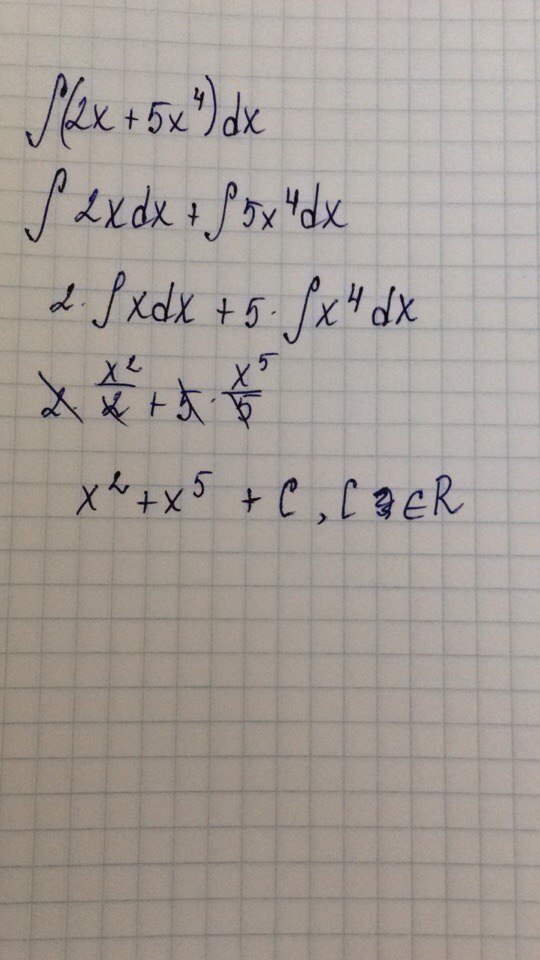 ∫(2x + 5x⁴)dx
∫ 2xdx + ∫ 5x⁴dx
2 · ∫ xdx + 5 · ∫ x⁴ dx
2 · x²/2 + 5 · x⁵/5
x² + x⁵ + C, C ∈ R